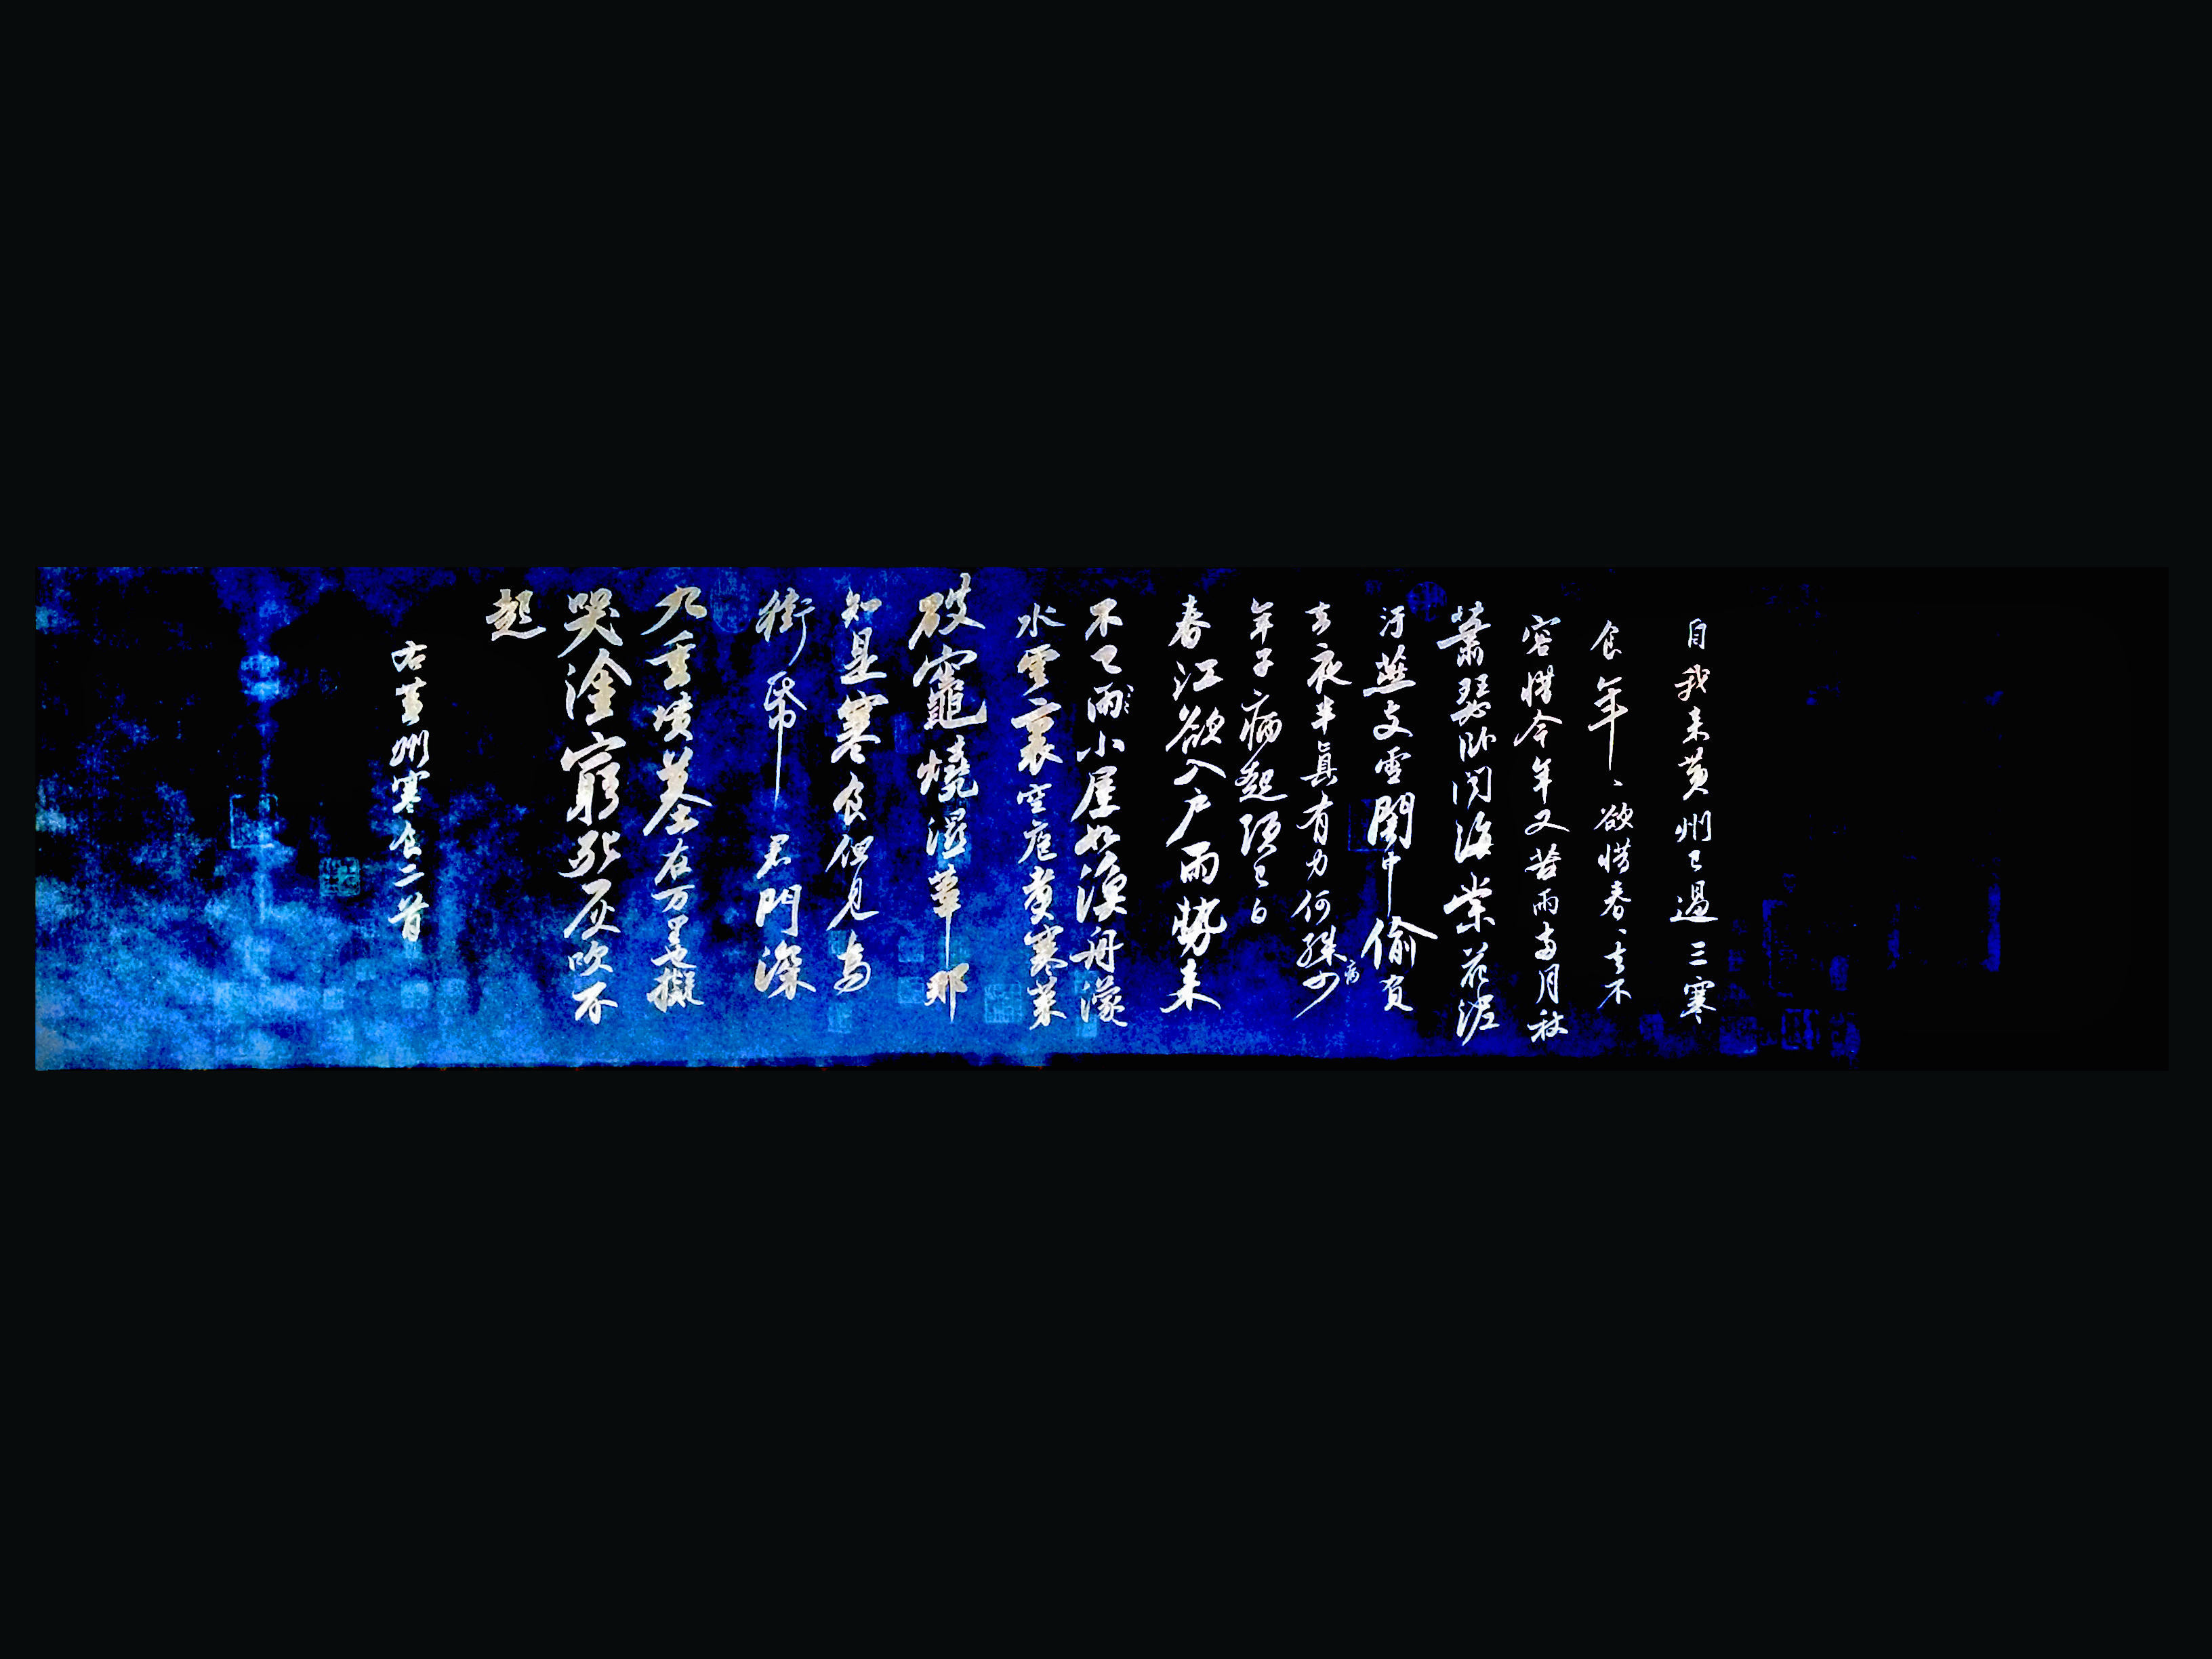 自我来黄州已過三寒
食年〻欲惜春〻去不
容惜今年又苦雨兩月秋
蕭瑟卧聞海棠花泥
汙燕支雪闇中偷負
去衣半真有力何殊少
病
年子病起頭已白
春江欲入户雨勢来
不已雨小屋如漁舟濛
水雲裏空庖煮寒菜
破竈燒濕葦那
知是寒食但見烏
銜帋君門深
九重墳墓在万里也擬
哭塗窮死灰吹不
起
右黄州寒食二首